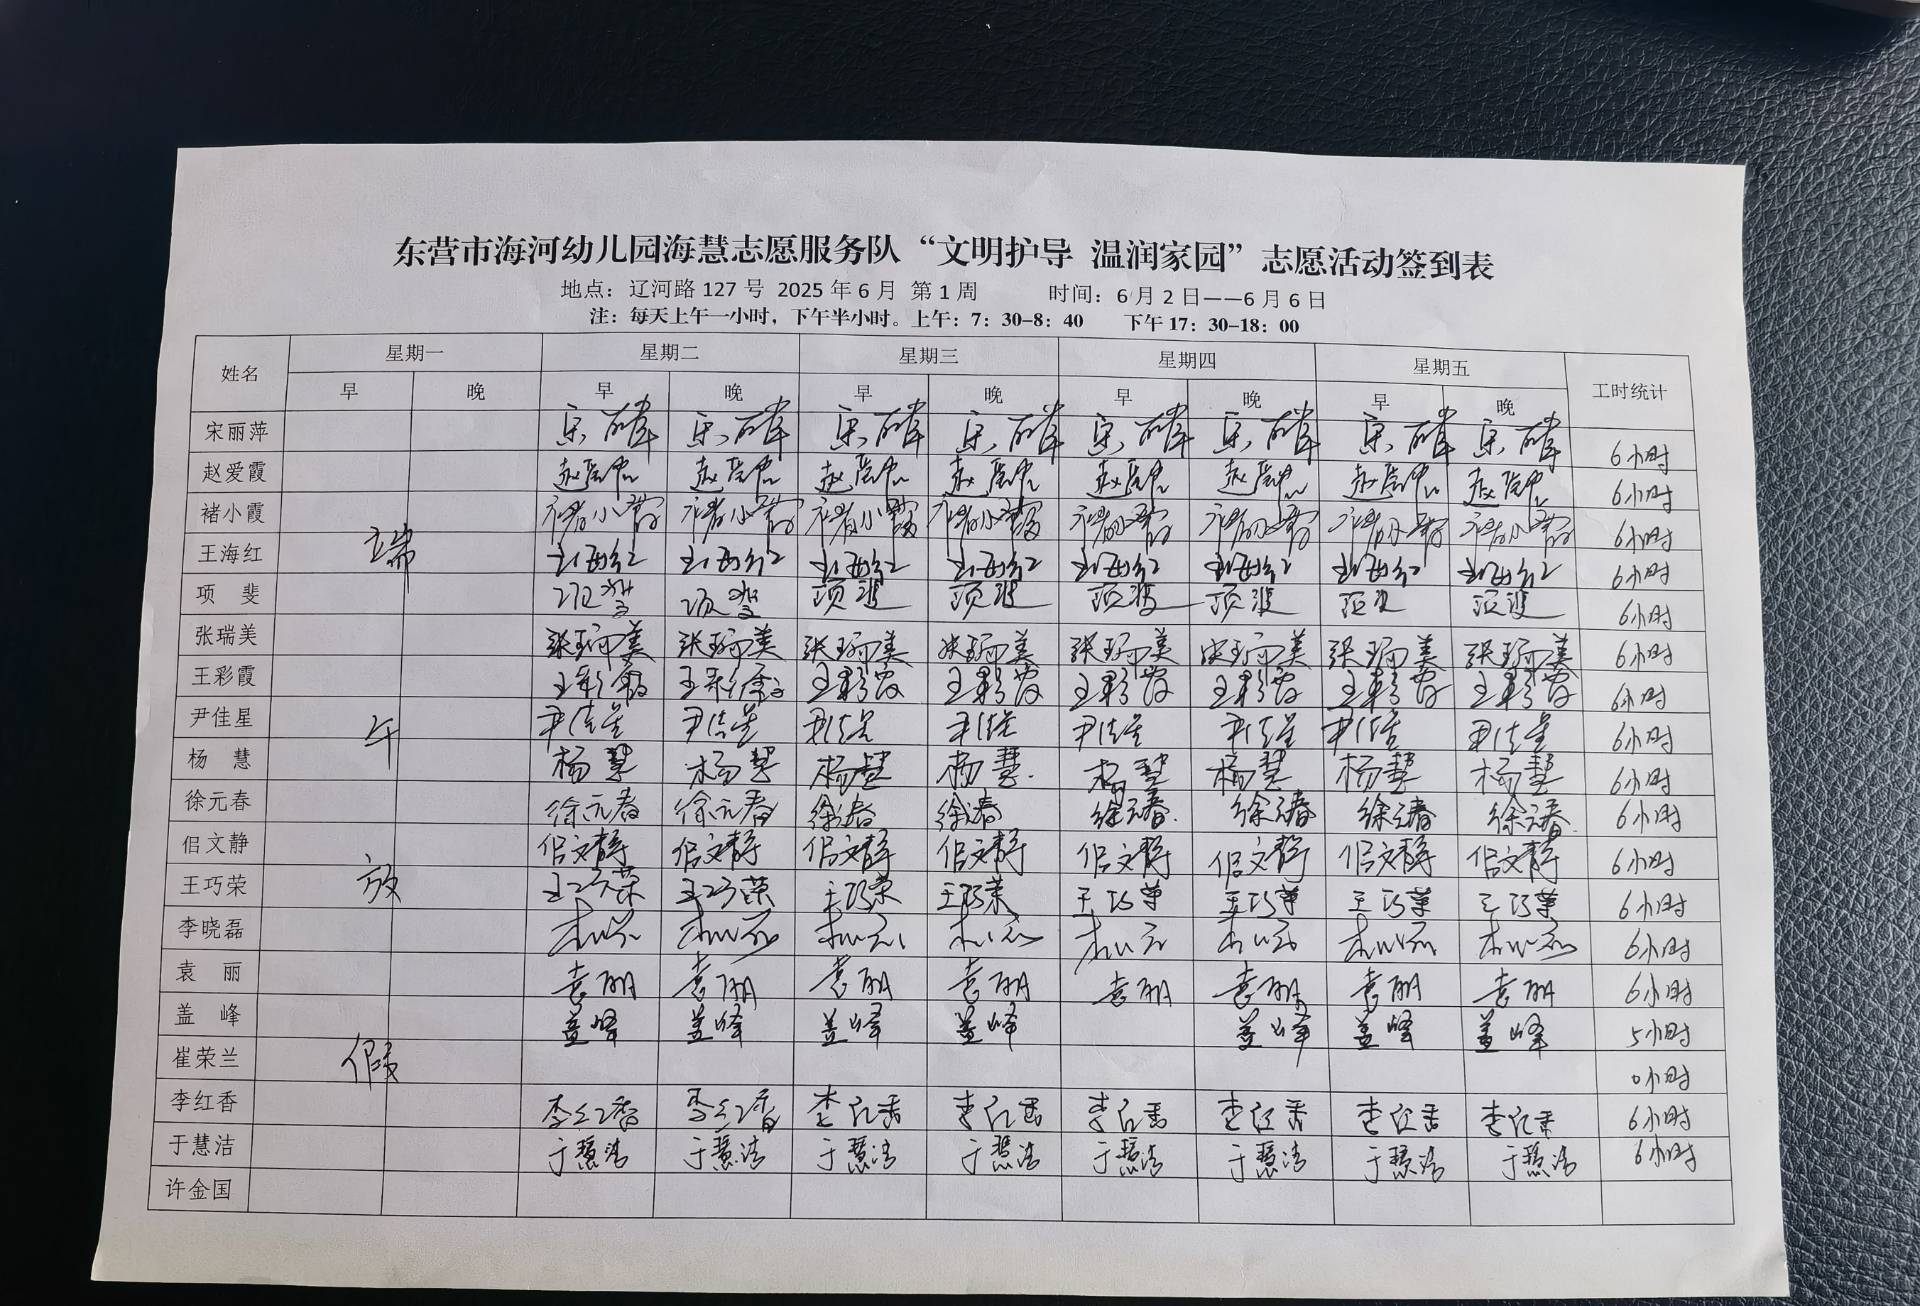 东营市海河幼儿园海慧志愿服务队“文明护导 温润家园”志愿活动签到表
地点：辽河路 127 号 2025 年 6 月 第 1 周 时间：6 月 2 日——6 月 6 日
注：每天上午一小时，下午半小时。上午：7：30-8：40 下午 17：30-18：00
姓名 星期一 星期二 星期三 星期四 星期五 工时统计
早 晚 早 晚 早 晚 早 晚 早 晚
宋丽萍 6小时
赵爱霞 6小时
褚小霞 褚小霞 褚小霞 褚小霞 褚小霞 褚小霞 褚小霞 褚小霞 褚小霞 6小时
王海红 端 王海红 王海红 王海红 王海红 王海红 王海红 王海红 王海红 6小时
项 斐 项斐 项斐 项斐 项斐 项斐 项斐 项斐 项斐 6小时
张瑞美 张瑞美 张瑞美 张瑞美 张瑞美 张瑞美 张瑞美 张瑞美 张瑞美 6小时
王彩霞 王彩霞 王彩霞 王彩霞 王彩霞 王彩霞 王彩霞 王彩霞 王彩霞 6小时
尹佳星 午 尹佳星 尹佳星 尹佳星 尹佳星 尹佳星 尹佳星 尹佳星 尹佳星 6小时
杨 慧 杨慧 杨慧 杨慧 杨慧 杨慧 杨慧 杨慧 杨慧 6小时
徐元春 徐元春 徐元春 徐元春 徐元春 徐元春 徐元春 徐元春 徐元春 6小时
佀文静 佀文静 佀文静 佀文静 佀文静 佀文静 佀文静 佀文静 佀文静 6小时
王巧荣 放 王巧荣 王巧荣 王巧荣 王巧荣 王巧荣 王巧荣 王巧荣 王巧荣 6小时
李晓磊 6小时
袁 丽 袁丽 袁丽 袁丽 袁丽 袁丽 袁丽 袁丽 袁丽 6小时
盖 峰 盖峰 盖峰 盖峰 盖峰 盖峰 盖峰 盖峰 5小时
崔荣兰 假 0小时
李红香 李红香 李红香 李红香 李红香 李红香 李红香 李红香 李红香 6小时
于慧洁 于慧洁 于慧洁 于慧洁 于慧洁 于慧洁 于慧洁 于慧洁 于慧洁 6小时
许金国